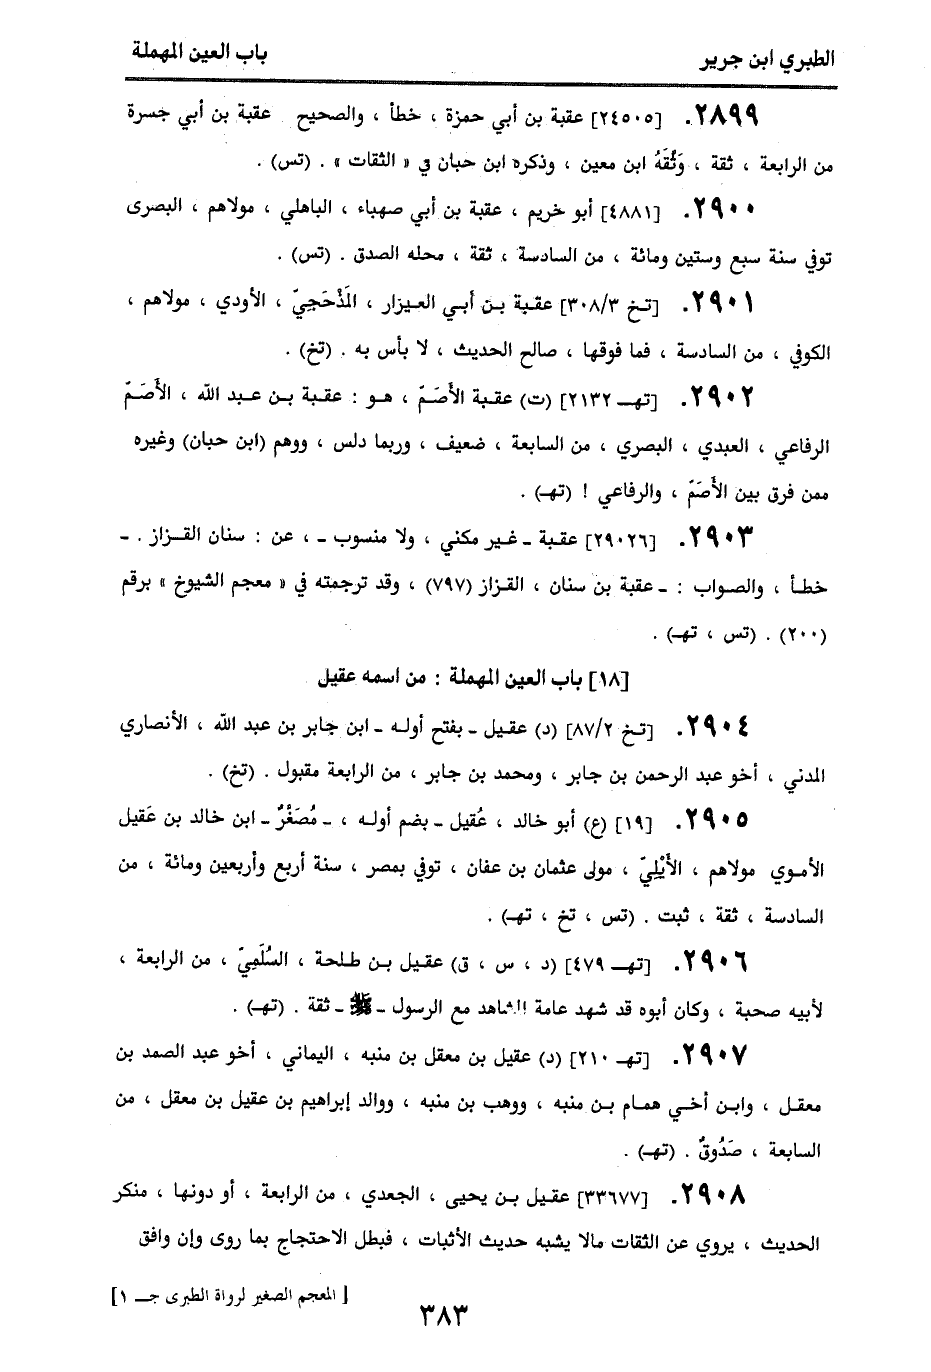 الطبري ابن جرير باب العين المهملة
٢٨٩٩. [٢٤٥٠٥] عقبة بن أبي حمزة ، خطأ ، والصحيح عقبة بن أبي جسرة
من الرابعة ، ثقة ، وَثَّقَهُ ابن معين ، وذكره ابن حبان في « الثقات » . (تس) .
٢٩٠٠. [٤٨٨١] أبو خريم ، عقبة بن أبي صهباء ، الباهلي ، مولاهم ، البصرى
توفي سنة سبع وستين ومائة ، من السادسة ، ثقة ، محله الصدق . (تس) .
٢٩٠١. [تخ ٣٠٨/٣] عقبة بن أبي العيزار ، المَذْحَجِيّ ، الأودي ، مولاهم ،
الكوفي ، من السادسة ، فما فوقها ، صالح الحديث ، لا بأس به . (تخ) .
٢٩٠٢. [تهـ ٢١٣٢] (ت) عقبة الأَصَمّ ، هو : عقبة بن عبد الله ، الأَصَمّ
الرفاعي ، العبدي ، البصري ، من السابعة ، ضعيف ، وربما دلس ، ووهم (ابن حبان) وغيره
ممن فرق بين الأَصَمّ ، والرفاعي ! (تهـ) .
٢٩٠٣. [٢٩٠٢٦] عقبة ـ غير مكني ، ولا منسوب ـ ، عن : سنان القزاز . ـ
خطأ ، والصواب : ـ عقبة بن سنان ، القزاز (٧٩٧) ، وقد ترجمته في « معجم الشيوخ » برقم
(٢٠٠) . (تس ، تهـ) .
[١٨] باب العين المهملة : من اسمه عقيل
٢٩٠٤. [تخ ٨٧/٢] (د) عقيل ـ بفتح أوله ـ ابن جابر بن عبد الله ، الأنصاري
المدني ، أخو عبد الرحمن بن جابر ، ومحمد بن جابر ، من الرابعة مقبول . (تخ) .
٢٩٠٥. [١٩] (ع) أبو خالد ، عُقيل ـ بضم أوله ، ـ مُصَغَّرٌ ـ ابن خالد بن عَقيل
الأموي مولاهم ، الأَيْلِيّ ، مولى عثمان بن عفان ، توفي بمصر ، سنة أربع وأربعين ومائة ، من
السادسة ، ثقة ، ثبت . (تس ، تخ ، تهـ) .
٢٩٠٦. [تهـ ٤٧٩] (د ، س ، ق) عقيل بن طلحة ، السُلَمِيّ ، من الرابعة ،
لأبيه صحبة ، وكان أبوه قد شهد عامة المشاهد مع الرسول ـ ﷺ ـ ثقة . (تهـ) .
٢٩٠٧. [تهـ ٢١٠] (د) عقيل بن معقل بن منبه ، اليماني ، أخو عبد الصمد بن
معقل ، وابن أخي همام بن منبه ، ووهب بن منبه ، ووالد إبراهيم بن عقيل بن معقل ، من
السابعة ، صَدُوقٌ . (تهـ) .
٢٩٠٨. [٣٣٦٧٧] عقيل بن يحيى ، الجعدي ، من الرابعة ، أو دونها ، منكر
الحديث ، يروي عن الثقات مالا يشبه حديث الأثبات ، فبطل الاحتجاج بما روى وإن وافق
[ المعجم الصغير لرواة الطبرى جـ ١]
٣٨٣